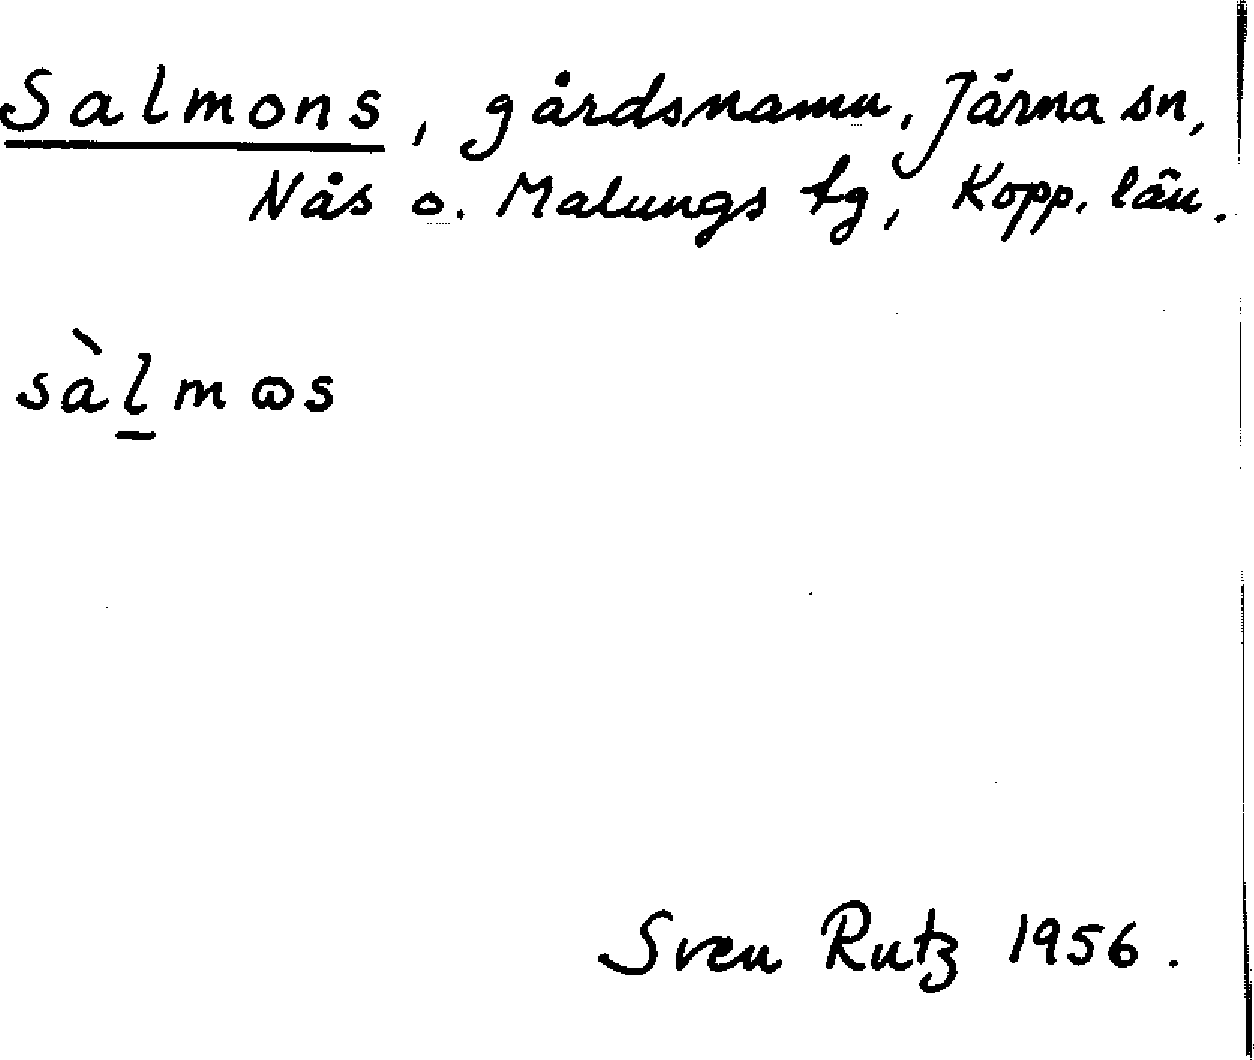 Salmons, gårdsnamn, Järna sn,
Nås o. Malungs tg, Kopp. län.
sàl̲mɷs
Sven Rutz 1956.